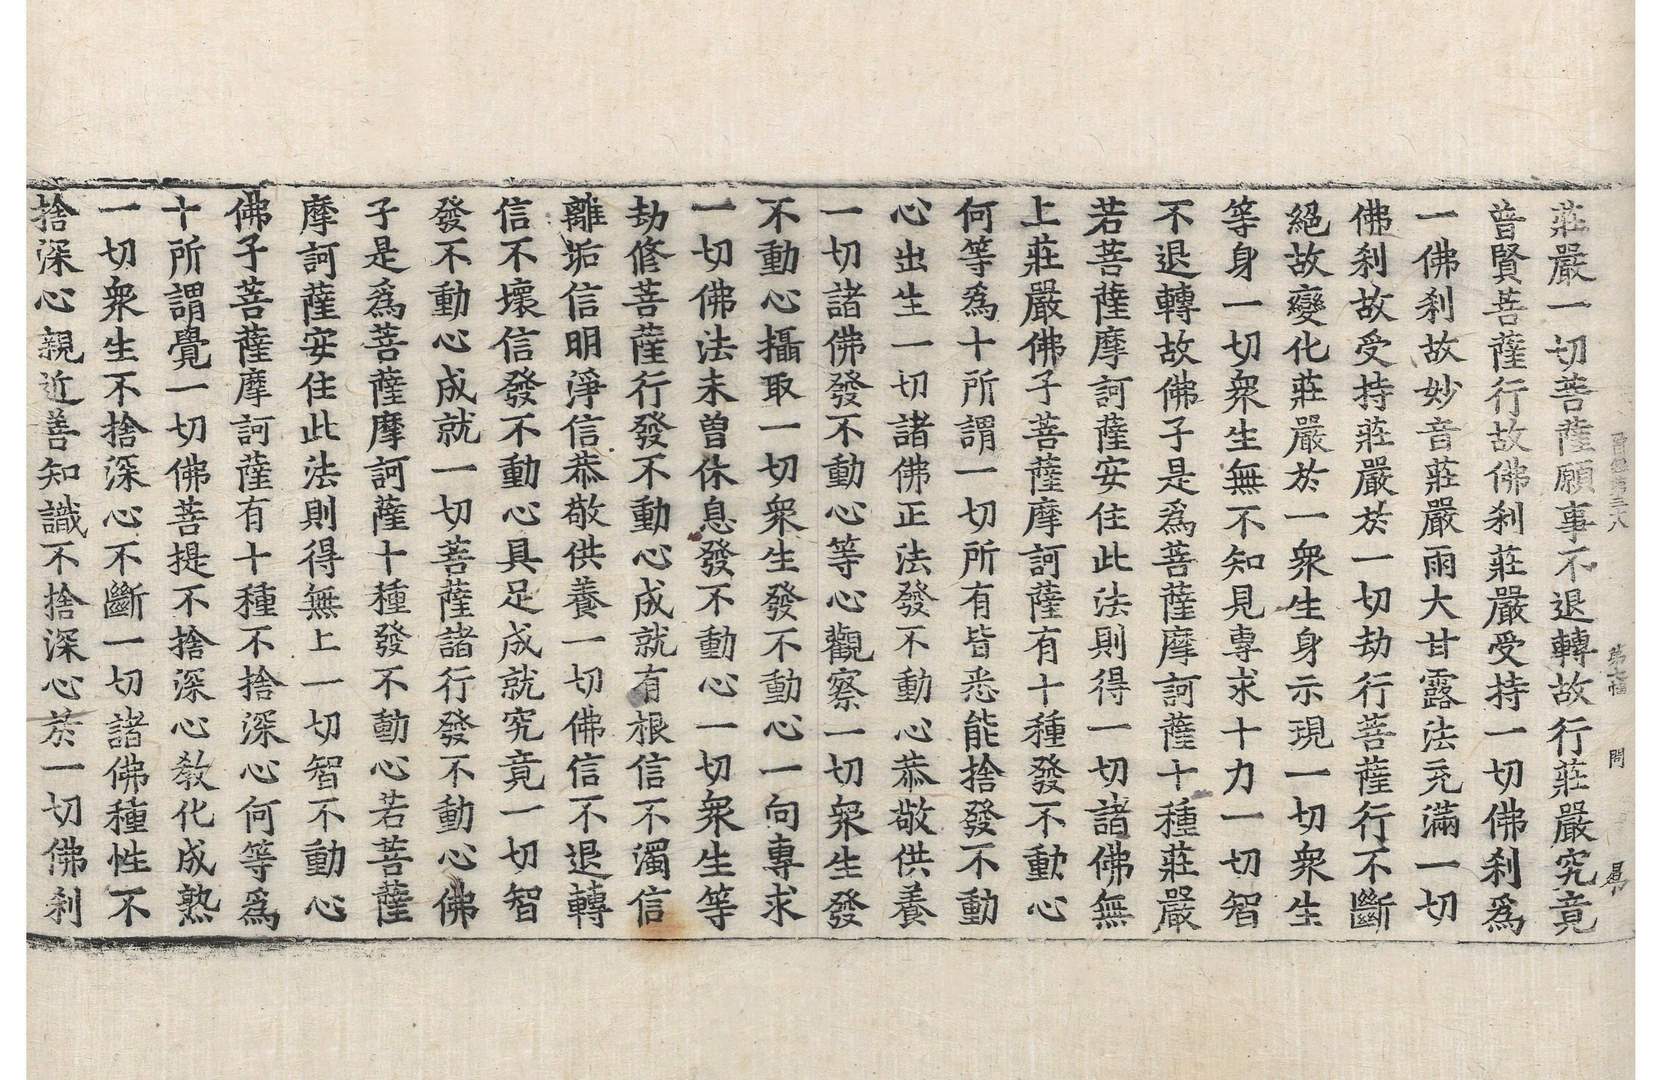 莊嚴一切菩薩願事不退轉故行莊嚴究竟
普賢菩薩行故佛刹莊嚴受持一切佛刹爲
一佛刹故妙音莊嚴雨大甘露法充滿一切
佛刹故受持莊嚴於一切劫行菩薩行不斷
絕故變化莊嚴於一衆生身示現一切衆生
等身一切衆生無不知見專求十力一切智
不退轉故佛子是爲菩薩摩訶薩十種莊嚴
若菩薩摩訶薩安住此法則得一切諸佛無
上莊嚴佛子菩薩摩訶薩有十種發不動心
何等爲十所謂一切所有皆悉能捨發不動
心出生一切諸佛正法發不動心恭敬供養
一切諸佛發不動心等心觀察一切衆生發
不動心攝取一切衆生發不動心一向專求
一切佛法未曾休息發不動心一切衆生等
劫修菩薩行發不動心成就有根信不濁信
離垢信明淨信恭敬供養一切佛信不退轉
信不壞信發不動心具足成就究竟一切智
發不動心成就一切菩薩諸行發不動心佛
子是爲菩薩摩訶薩十種發不動心若菩薩
摩訶薩安住此法則得無上一切智不動心
佛子菩薩摩訶薩有十種不捨深心何等爲
十所謂覺一切佛菩提不捨深心教化成熟
一切衆生不捨深心不斷一切諸佛種性不
捨深心親近善知識不捨深心於一切佛刹